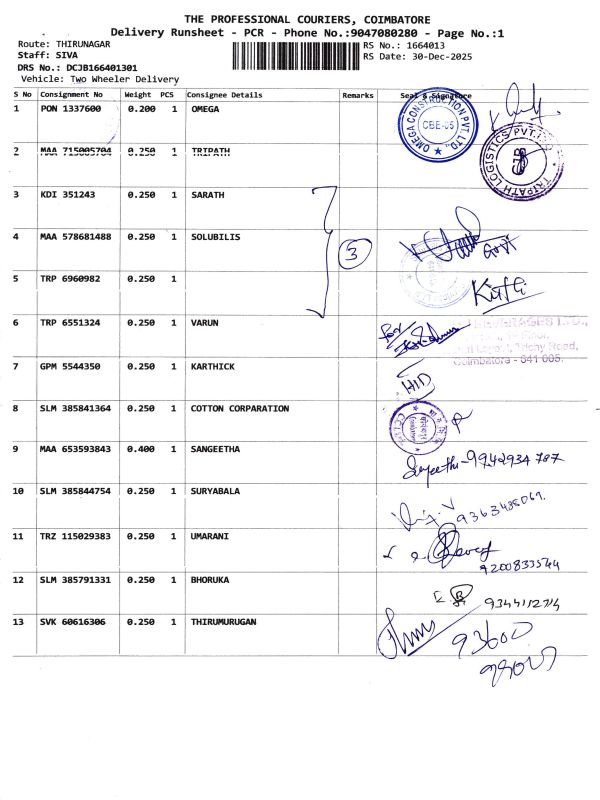 THE PROFESSIONAL COURIERS, COIMBATORE
Delivery Runsheet - PCR - Phone No.:9047080280 - Page No.:1
Route: THIRUNAGAR
RS No.: 1664013
Staff: SIVA
RS Date: 30-Dec-2025
DRS No.: DCJB166401301
Vehicle: Two Wheeler Delivery
S No Consignment No Weight PCS Consignee Details Remarks Seal & Signature
1 PON 1337600 0.200 1 OMEGA
OMEGA CONSTRUCTION PVT. LTD.
CBE-05
2 MAA 715005704 0.250 1 TRIPATH
TRIPATH LOGISTICS PVT. LTD
3 KDI 351243 0.250 1 SARATH
4 MAA 578681488 0.250 1 SOLUBILIS
3
5 TRP 6960982 0.250 1
6 TRP 6551324 0.250 1 VARUN
For
Trichy Road,
Coimbatore - 641 005.
7 GPM 5544350 0.250 1 KARTHICK
HID
8 SLM 385841364 0.250 1 COTTON CORPARATION
9 MAA 653593843 0.400 1 SANGEETHA
9942934787
10 SLM 385844754 0.250 1 SURYABALA
11 TRZ 115029383 0.250 1 UMARANI
9200833544
12 SLM 385791331 0.250 1 BHORUKA
13 SVK 60616306 0.250 1 THIRUMURUGAN
93600